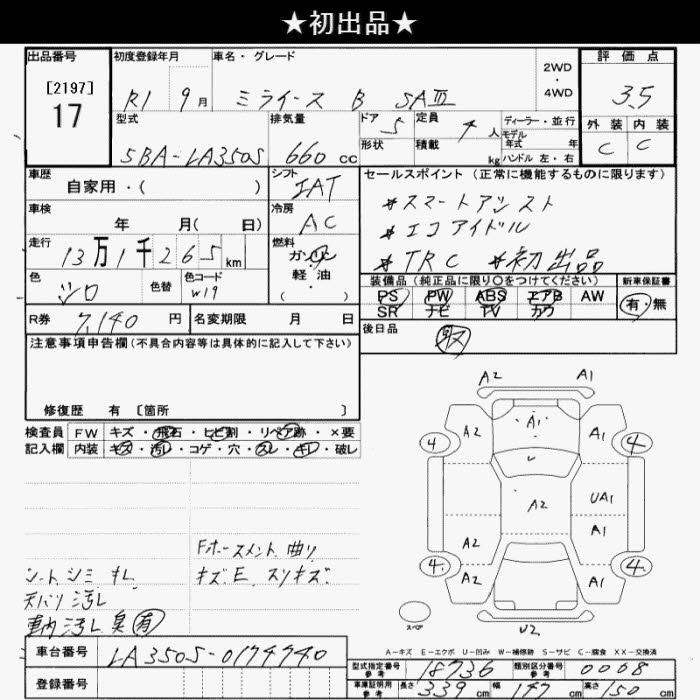 ★初出品★
出品番号
[2197]
17
初度登録年月
R1 9月
車名・グレード
ミライース B SAⅢ
2WD
・
4WD
評価点
3.5
外装 内装
C C
型式
5BA-LA350S
排気量
660 cc
ドア
5
定員
4 人
形状
積載
kg
ディーラー・並行
モデル
年式 年
ハンドル 左・右
車歴
自家用・( )
シフト
IAT
セールスポイント (正常に機能するものに限ります)
*スマートアシスト
*エコアイドル
*TRC *初出品
車検
年 月( 日)
冷房
AC
走行
13万1千265 km
燃料
ガソリン
軽油
( )
色
シロ
色替
色コード
W19
装備品 (純正品に限り〇をつけてください)
PS PW ABS エアB AW
SR ナビ TV カワ
新車保証書
有・無
R券 7,140 円
名変期限 月 日
後日品
取
注意事項申告欄 (不具合内容等は具体的に記入して下さい)
修復歴 有 [箇所 ]
検査員
記入欄
FW キズ・飛石・ヒビ割・リペア跡・×要
内装 キズ・汚レ・コゲ・穴・スレ・キレ・破レ
Fホースメント曲リ
キズ.E.スリキズ.
シートシミ キレ
天バリ汚レ
車内汚レ 臭有
A2 A1
A2 A1 A1
4 4
A2 UA1
A1
A2
4 4
A2 A1
U2
スペア
A-キズ E-エクボ U-凹み W-補修跡 S-サビ C-腐食 XX-交換済
車台番号 LA350S-0174740
登録番号
型式指定番号
参考
18736
類別区分番号
参考
0008
車庫証明用
参考
長さ 339 cm 幅 147 cm 高さ 150 cm